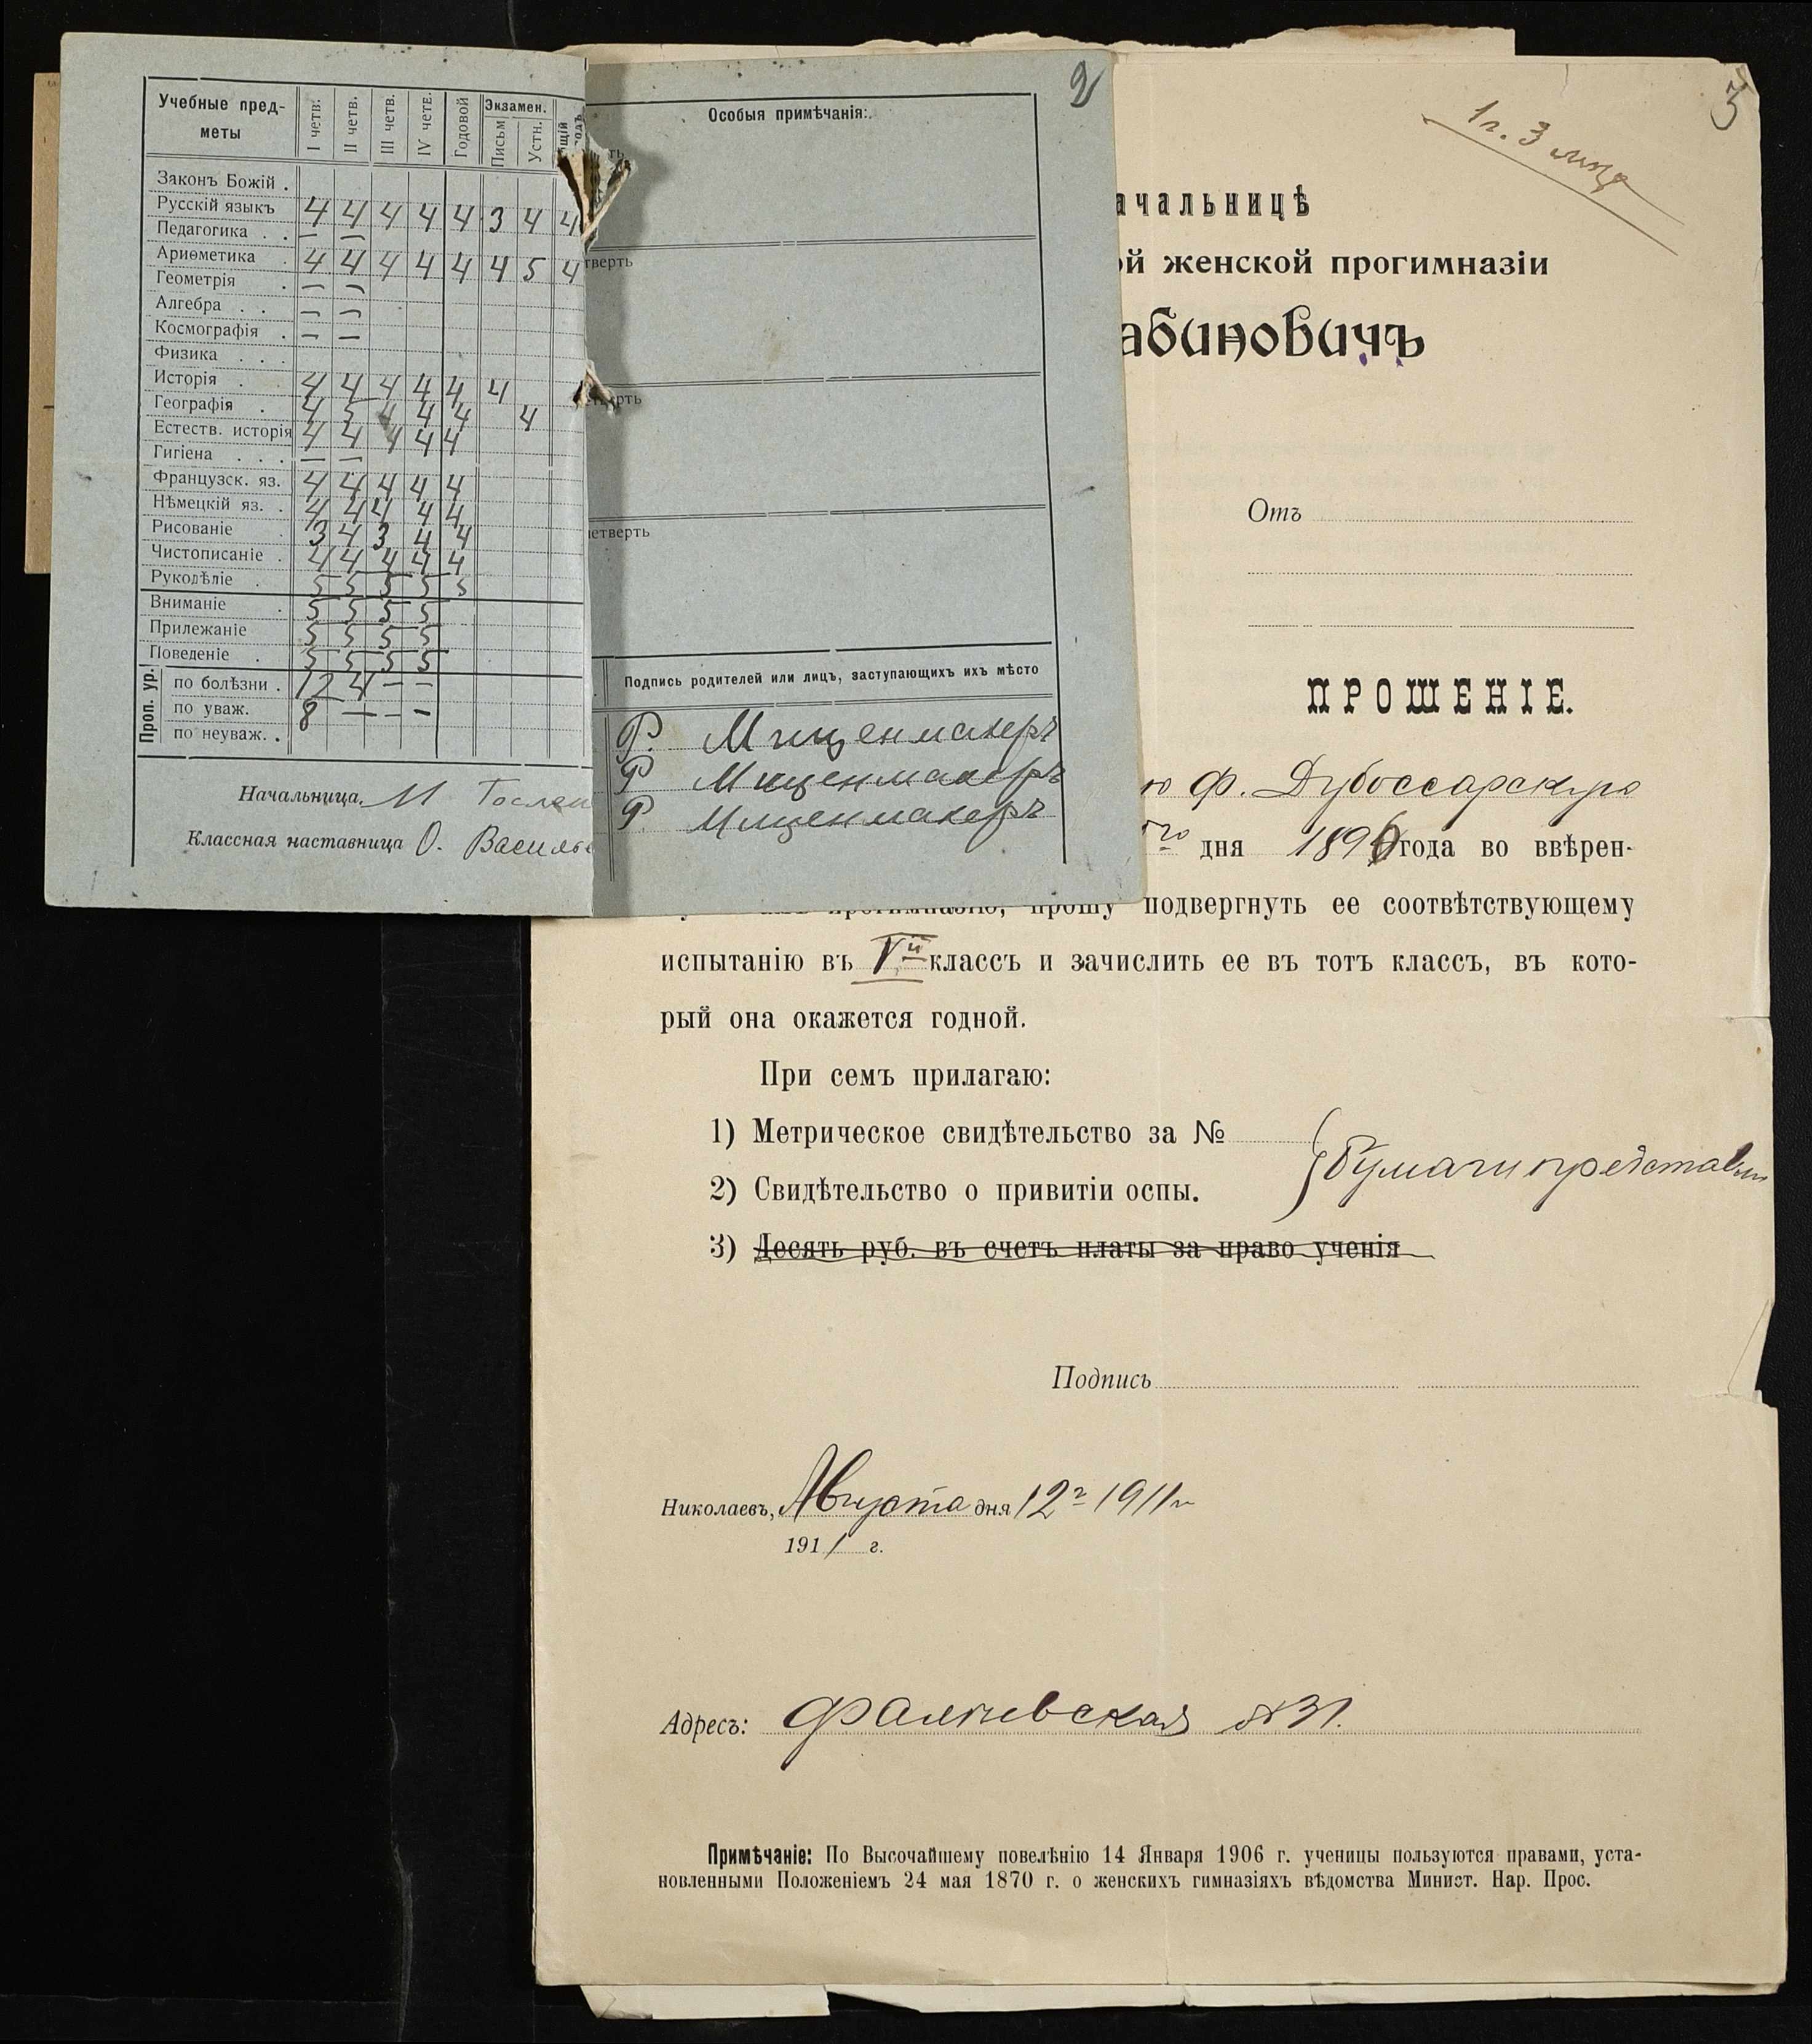 2
Учебные пред-
меты
I четв. II четв. III четв. IV четв. Годовой Экзамен. Письм Устн.
Законъ Божій .
Русскій языкъ 4 4 4 4 4 3 4 4
Педагогика . . — —
Ариѳметика . 4 4 4 4 4 4 5 4
Геометрія . — —
Алгебра . . — —
Космографія . — —
Физика . . .
Исторія . 4 4 4 4 4 4
Географія . 4 5 4 4 4 4
Естеств. исторія 4 4 4 4 4
Гигіена . . . — —
Французск. яз. 4 4 4 4 4
Нѣмецкій яз. . 4 4 4 4 4
Рисованіе . 3 4 3 4 4
Чистописаніе . 4 4 4 4 4
Рукодѣліе . 5 5 5 5 5
Вниманіе . 5 5 5 5
Прилежаніе 5 5 5 5
Поведеніе . 5 5 5 5
Проп. ур.
по болѣзни . 12 4 — —
по уваж. 8 — — —
по неуваж. .
Начальница. И
Классная наставница О.
Особыя примѣчанія:
тверть
четверть
Подпись родителей или лицъ, заступающихъ ихъ мѣсто
Р. Мищенмахеръ
Р Мищенмахеръ
Р. Мищенмахеръ
3
1 г. 3
ачальницѣ
ой женской прогимназіи
абиновичъ
Отъ
ПРОШЕНІЕ.
ю Ф. Дубоссарскую
го дня 1896 года во ввѣрен-
прогимназію, прошу подвергнуть ее соотвѣтствующему
испытанію въ V й классъ и зачислить ее въ тотъ классъ, въ кото-
рый она окажется годной.
При семъ прилагаю:
1) Метрическое свидѣтельство за №
Бумаги представлены
2) Свидѣтельство о привитіи оспы.
3) Десять руб. въ счетъ платы за право ученія
Подпись
Николаевъ, Августа дня 12 г 1911 г
191 1 г.
Адресъ: Фалѣевская № 31.
Примѣчаніе: По Высочайшему повелѣнію 14 Января 1906 г. ученицы пользуются правами, уста-
новленными Положеніемъ 24 мая 1870 г. о женскихъ гимназіяхъ вѣдомства Минист. Нар. Прос.